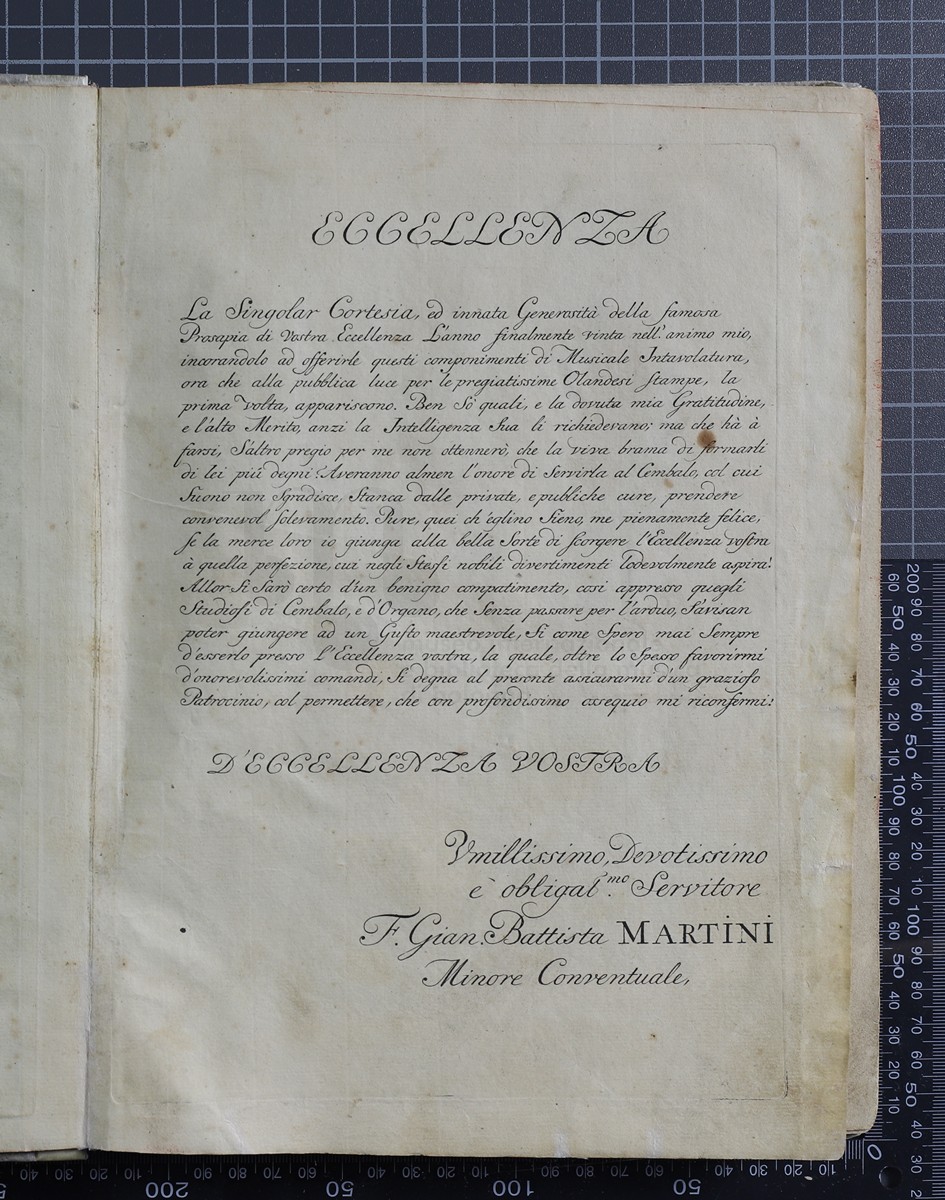 ECCELLENZA
La Singolar Cortesia, ed innata Generosità della famosa
Prosapia di Vostra Eccellenza L'anno finalmente vinta nell'animo mio,
incorandolo ad offerirle questi componimenti di Musicale Intavolatura,
ora che alla pubblica luce per le pregiatissime Olandesi stampe, la
prima volta, appariscono. Ben Sò quali, e la dovuta mia Gratitudine,
e l'alto Merito, anzi la Intelligenza Sua li richiedevano; ma che hà à
farsi, S'altro pregio per me non ottennerò, che la viva brama di formarli
di lei più degni? Averanno almen l'onore di Servirla al Cembalo, col cui
Suono non Sgradisce, Stanca dalle private, e publiche cure, prendere
convenevol Solevamento. Pure, quei ch'eglino Sieno, me pienamente felice,
se la merce loro io giunga alla bella Sorte di scorgere l'Eccellenza vostra
à quella perfezione, cui negli Stessi nobili divertimenti Lodevolmente aspira!
Allor Si Sarò certo d'un benigno compatimento, così appresso quegli
Studiosi di Cembalo, e d'Organo, che Senza passare per l'arduo, S'avisan
poter giungere ad un Gusto maestrevole, Si come Spero mai Sempre
d'esserlo presso L'Eccellenza vostra, la quale, oltre lo Spesso favorirmi
d'onorevolissimi comandi, Si degna al presente assicurarmi d'un grazioso
Patrocinio, col permettere, che con profondissimo ossequio mi riconfermi!
D'ECCELLENZA VOSTRA
Vmillissimo, Devotissimo
è obligat.mo Servitore
F. Gian. Battista MARTINI
Minore Conventuale,
200 90 80 70 60 50 40 30 20 10 100 90 80 70 60 50 40 30
60 50 40 30 20 10 100 90 80 70 60 50 40 30 20 10
0
200 50 100 50